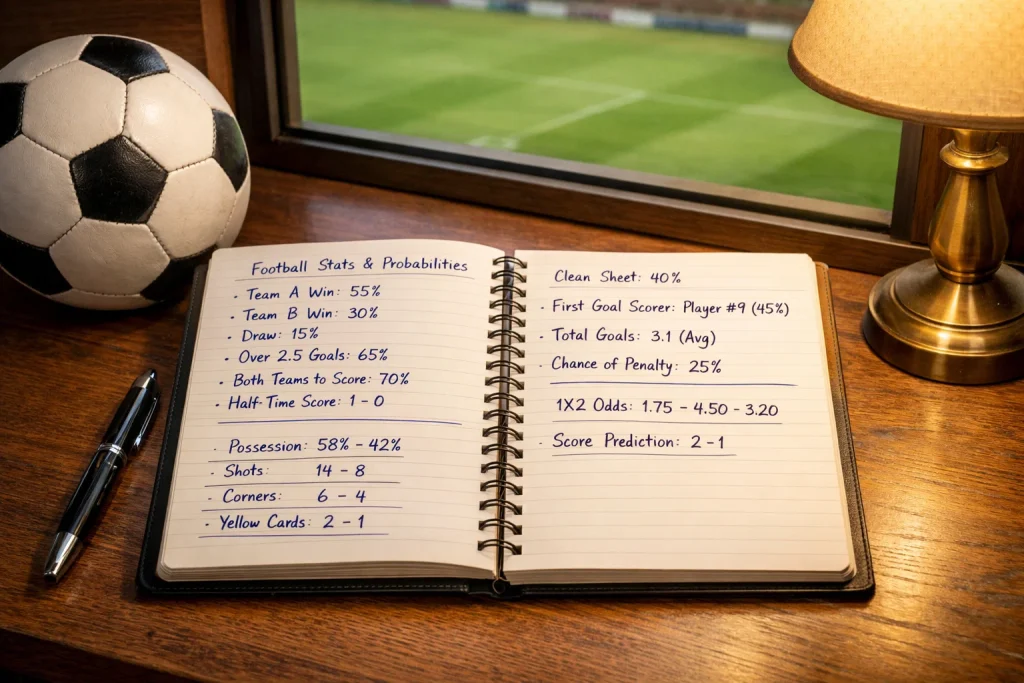 Football Stats & Probabilities
· Team A Win: 55%
· Team B Win: 30%
· Draw: 15%
· Over 2.5 Goals: 65%
· Both Teams to Score: 70%
· Half-Time Score: 1 - 0
· Possession: 58% - 42%
· Shots: 14 - 8
· Corners: 6 - 4
· Yellow Cards: 2 - 1
Clean Sheet: 40%
· First Goal Scorer: Player #9 (45%)
· Total Goals: 3.1 (Avg)
· Chance of Penalty: 25%
1X2 Odds: 1.75 - 4.50 - 3.20
· Score Prediction: 2 - 1